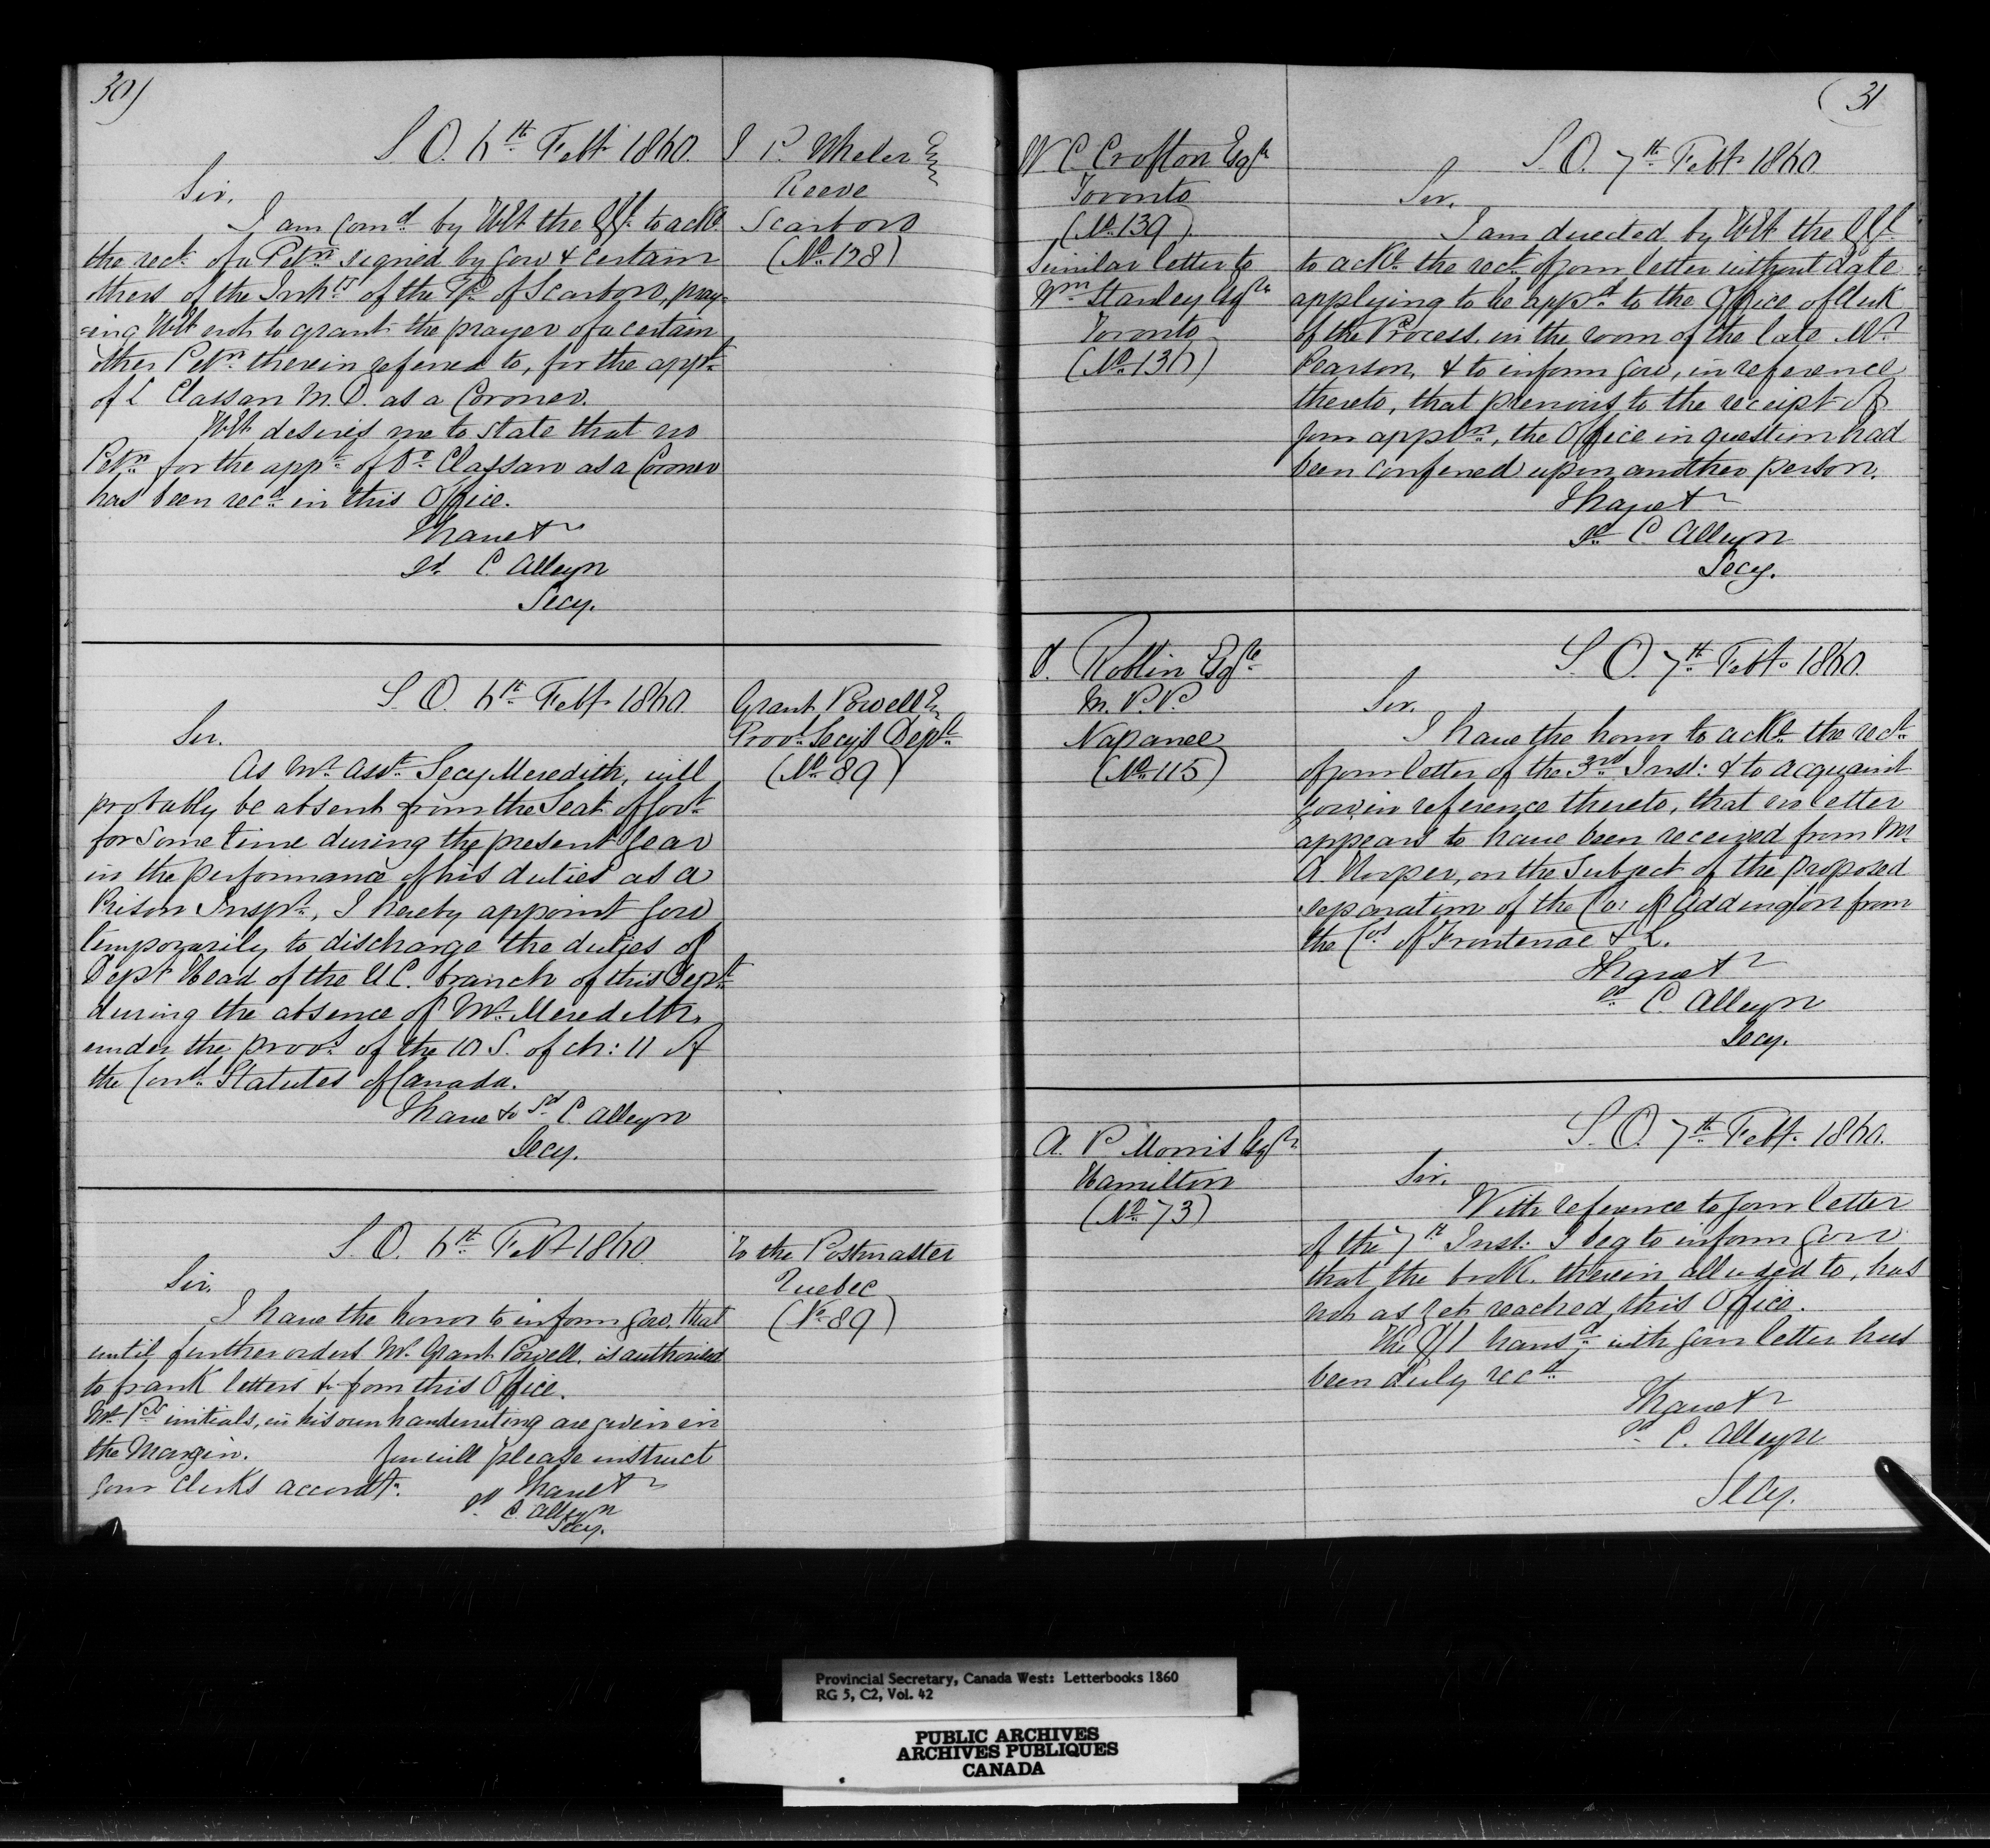 30)
S. O. 6th Feby 1860.
J P. Wheler Esq
Reeve
Scarboro
(No. 128)
Sir,
I am Comd by H.E. the G.G. to ackn.
the rect. of a Petn signed by you & certain
others of the Inhts of the Tp. of Scarboro, pray-
-ing H.E. not to grant the prayer of a certain
other Petn therein referred to, for the appt.
of L Classan M.D. as a Coroner.
H.E. desires me to state that no
Petn for the appt. of Dr Classan as a Coroner
has been recd. in this Office.
I have &
sd. C. Alleyn
Secy.
S. O. 6th Feby 1860.
Grant Powell E
Provl Secys Dept.
(No. 89)
Sir.
As Mr. Asst. Secy Meredith, will
probably be absent from the Seat of Govt.
for some time during the present year
in the performance of his duties as a
Prison Inspr., I hereby appoint you
temporarily to discharge the duties of
Depy Head of the U.C. branch of this Dept.
during the absence of Mr. Meredith,
under the provs. of the 10 S. of ch: 11 of
the Cond. Statutes of Canada.
I have & Sd C. Alleyn
Secy.
S. O. 6th Feby 1860
To the Postmaster
Quebec
(No 89)
Sir,
I have the honor to inform you, that
until further orders Mr. Grant Powell, is authorised
to frank letters &c from this Office.
Mr. Ps initials, in his own handwriting are given in
the Margin. You will please instruct
your Clerks accordy.
I have &
sd C. Alleyn
Secy.
(31
W C Crofton Esqr
Toronto
(No. 139)
Similar letter to
Wm Stanley Esqr
Toronto
(No. 136)
S. O. 7th Feby 1860
Sir,
I am directed by H.E. the G.G.
to ackn. the rect. of your letter without date
applying to be appd. to the Office of Clerk
of the Process, in the room of the late Mr
Pearson, & to inform you, in reference
thereto, that previous to the receipt of
your appln, the Office in question had
been conferred upon another person.
I have &
sd. C. Alleyn
Secy.
D. Roblin Esqre
M. P. P.
Napanee
(No. 115)
S. O. 7th Feby. 1860.
Sir.
I have the honor to ackn. the rect.
of your letter of the 3rd Inst: & to acquaint
you, in reference thereto, that no letter
appears to have been received from Mr.
A. Hooper, on the Subject of the proposed
separation of the Co: of Addington from
the Cos of Frontenac & L.
I have &
sd. C. Alleyn
Secy.
A. P Morris Esqr
Hamilton
(No. 73)
S. O. 7th Feby. 1860.
Sir,
With reference to your letter
of the 7th Inst: I beg to inform you
that the book therein alluded to, has
not as yet reached this Office.
The $1 transd. with your letter has
been duly recd.
I have &
sd. C. Alleyn
Secy.
Provincial Secretary, Canada West: Letterbooks 1860
RG 5, C2, Vol. 42
PUBLIC ARCHIVES
ARCHIVES PUBLIQUES
CANADA